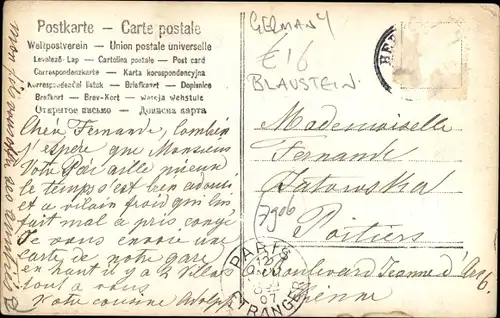 Postkarte — Carte postale
Weltpostverein — Union postale universelle
Levelező-Lap — Cartolina postale — Post card
Correspondenzkarte — Karta korespondencyjna
Korespondenční lístek — Briefkaart — Dopisnice
Brefkort — Brev-Kort — Митеја wehstule
Открытое письмо — Дописна карта
GERMANY
£16
BLAUSTEIN.
Chère Fernande, Combien
J'espère que Monsieur
Votre Papa aille mieux
le temps s'est bien adouci
et a vilain froid qui lui
fait mal a pris congé
Je vous envoie une
carte de notre gare
en haut il y a 2 villas
tout a vous
Votre cousine Adolph
Mademoiselle
Fernande
Tatowska
Poitiers
Boulevard Jeanne d'Arc 6.
Vienne
7906
PARIS
12
07
ETRANGER